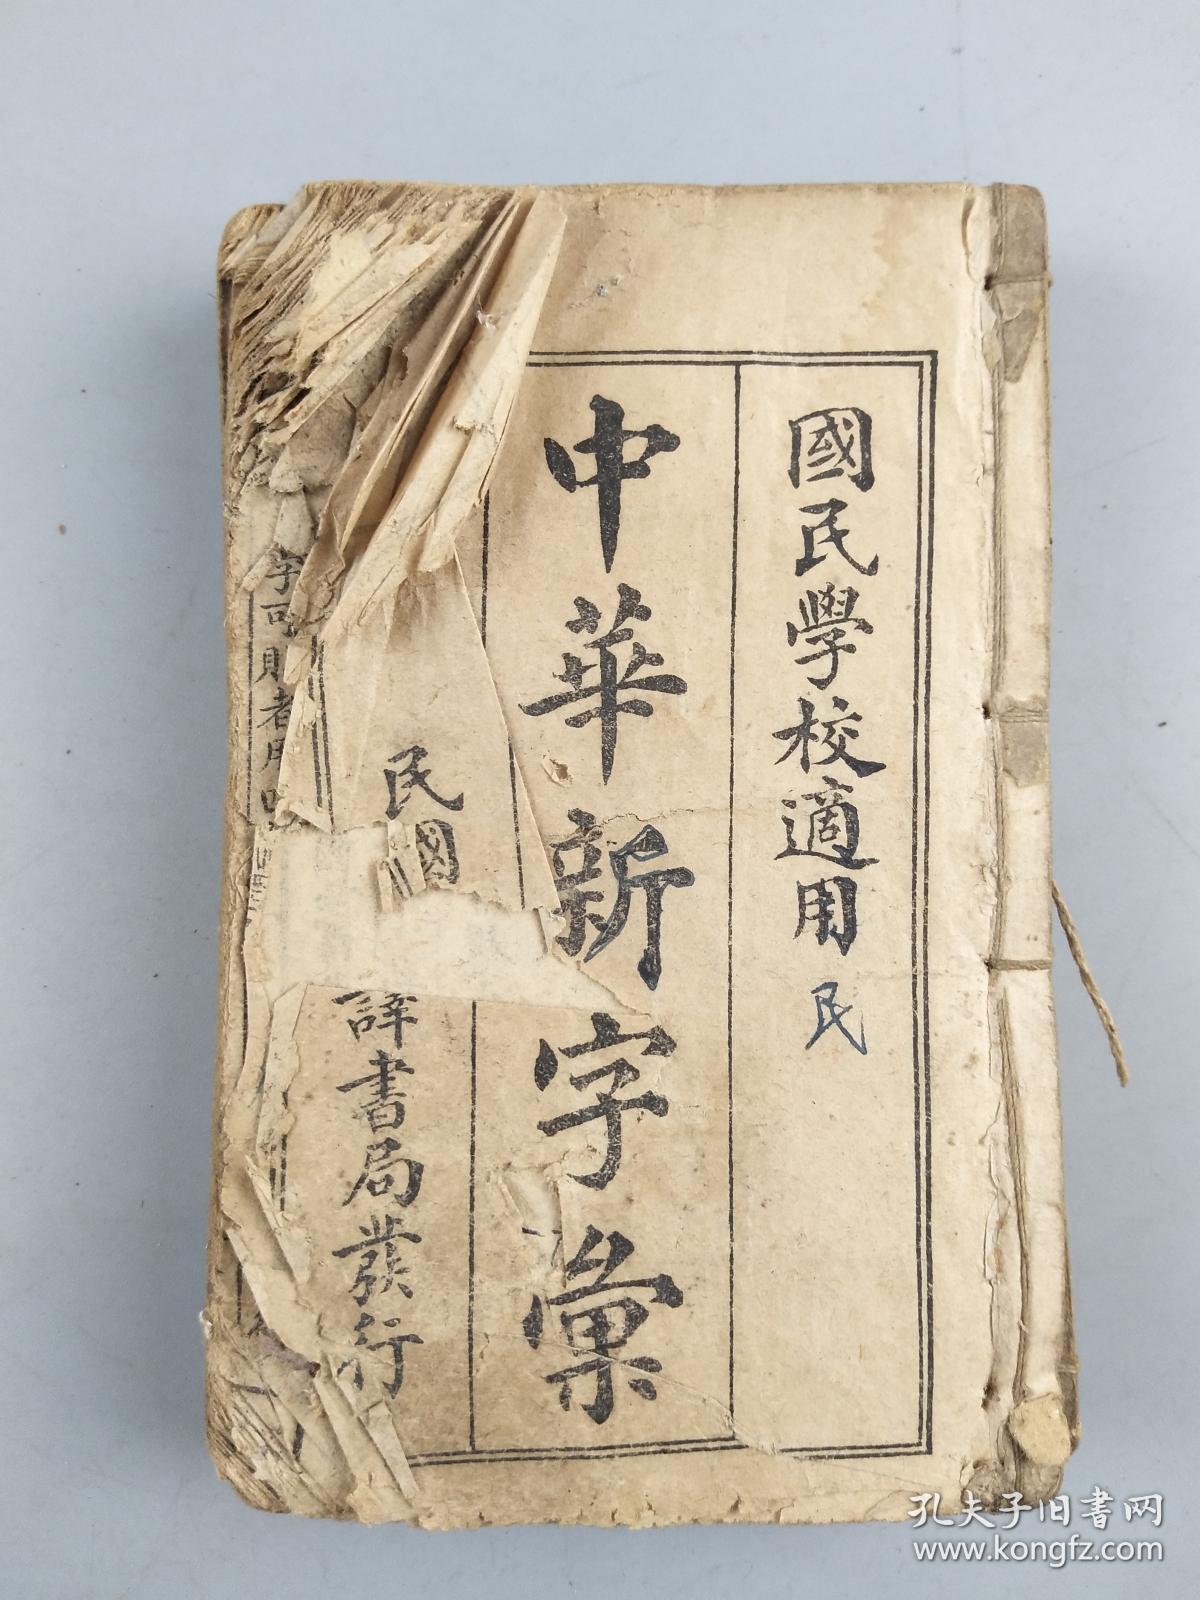 國民學校適用
民
中華新字彙
民國
譯書局發行
字可財者用
孔夫子旧书网
www.kongfz.com